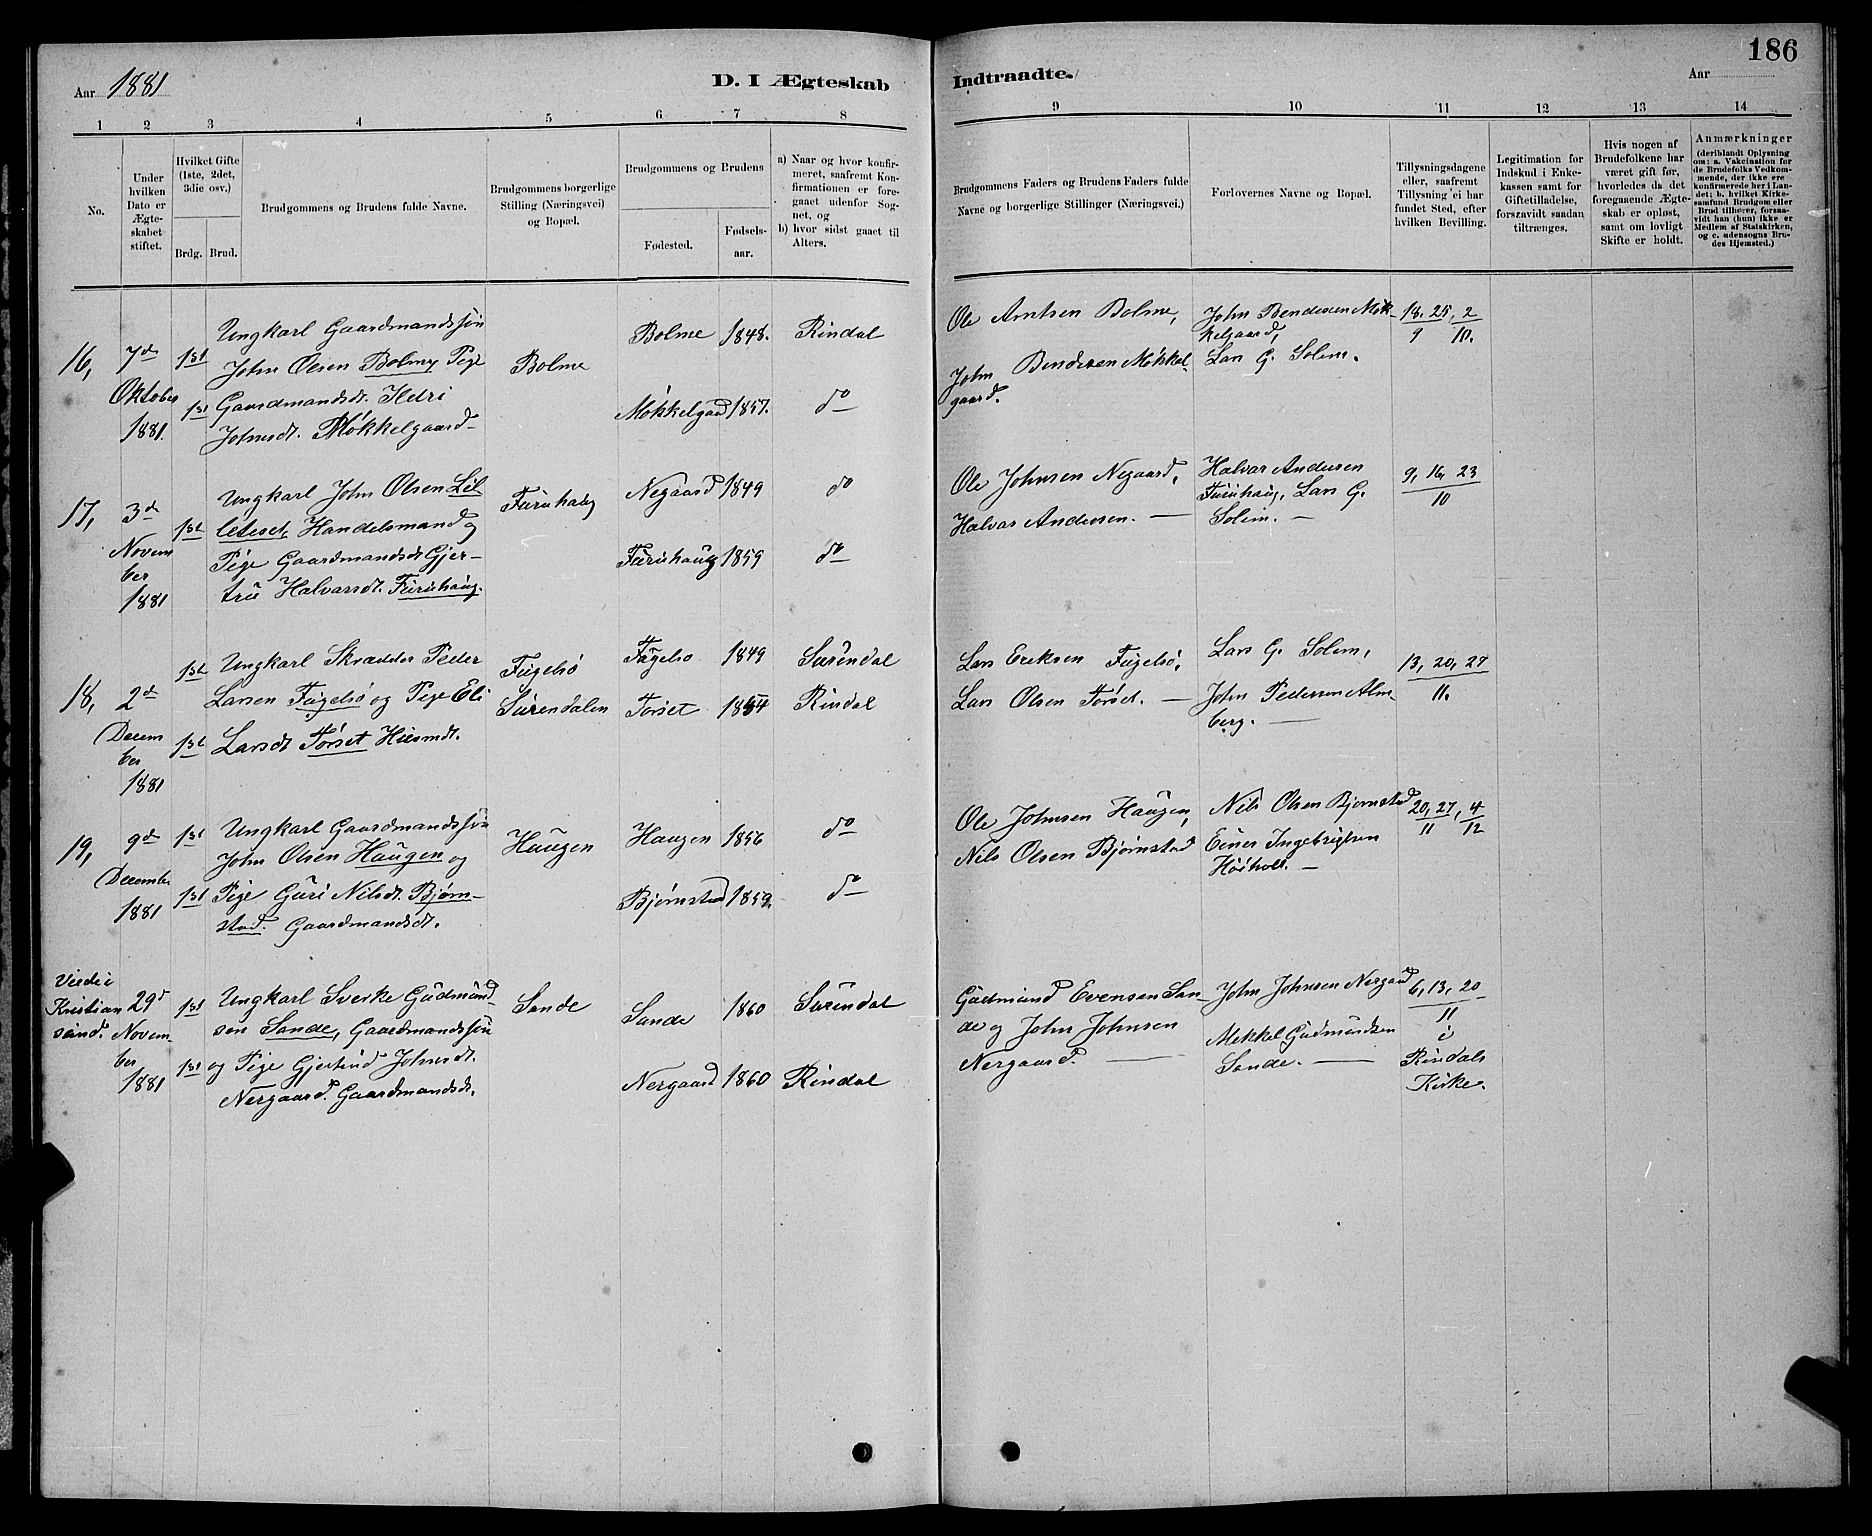 186
Aar 1881
D. I Ægteskab
Indtraadte.
Aar
1
2
3
4
5
6
7
8
9
10
11
12
13
14
No.
Under
hvilken
Dato er
Ægte-
skabet
stiftet.
Hvilket Gifte
(1ste, 2det,
3die osv.)
Brdg.
Brud.
Brudgommens og Brudens fulde Navne.
Brudgommens borgerlige
Stilling (Næringsvei)
og Bopæl.
Brudgommens og Brudens
Fødested.
Fødsels-
aar.
a) Naar og hvor konfir-
meret, saafremt Kon-
firmationen er fore-
gaaet udenfor Sog-
net, og
b) hvor sidst gaaet til
Alters.
Brudgommens Faders og Brudens Faders fulde
Navne og borgerlige Stillinger (Næringsvei.)
Forlovernes Navne og Bopæl.
Tillysningsdagene
eller, saafremt
Tillysning ei har
fundet Sted, efter
hvilken Bevilling.
Legitimation for
Indskud i Enke-
kassen samt for
Giftetilladelse,
forsaavidt saadan
tiltrænges.
Hvis nogen af
Brudefolkene har
været gift før,
hvorledes da det
foregaaende Ægte-
skab er opløst,
samt om lovligt
Skifte er holdt.
Anmærkninger
(deriblandt Oplysning
om: a. Vakcination for
de Brudefolks Vedkom-
mende, der ikke ere
konfirmerede her i Lan-
det; b. hvilket Kirke-
samfund Brudgom eller
Brud tilhører, forsaa-
vidt han (hun) ikke er
Medlem af Statskirken,
og c. udensogns Bru-
des Hjemsted.)
16,
7d
Oktober
1881.
1st
1st
Ungkarl Gaardmandssøn
John Olsen Bolme, Pige
Gaardmandsdt. Ildri
Johnsdt. Møkkelgaard
Bolme
Bolme 1848.
Møkkelgaard 1857.
Rindal
do
Ole Arntsen Bolme,
John Bendixsen Møkkel-
gaard.
John Bendixsen Møk-
kelgaard,
Lars G. Solem.
18, 25, 2
9 10.
17,
3d
Novem
ber
1881
1st
Ungkarl John Olsen Lil
leteset, Handelsmand og
Pige Gaardmandsdt Gjer-
tru Halvarsdt. Furuhaug.
Furuhaug
Negaard 1849
Furuhaug 1859
do
do
Ole Johnsen Negaard,
Halvar Andersen.
Halvar Andersen
Furuhaug, Lars G.
Solem.
9, 16, 23
10
18,
2d
Decem
ber
1881
1st
1st
Ungkarl Skrædder Peder
Larsen Fugelsø og Pige Eli
Larsdt Tørset Husmdt.
Fugelsø
Surendalen
Fugelsø 1849
Tørset 1854
Surendal
Rindal
Lars Eriksen Fugelsø,
Lars Olsen Tørset.
Lars G. Solem,
John Pedersen Alm-
berg.
13, 20, 27
11.
19,
9d
December
1881
1st
1st
Ungkarl Gaardmandssøn
John Olsen Haugen og
Pige Guri Nilsdt. Bjørn-
stad. Gaardmandsdt.
Haugen
Haugen 1856
Bjørnstad 1859
do
do
Ole Johnsen Haugen,
Nils Olsen Bjørnstad
Nils Olsen Bjørnstad
Einer Ingebrigtsen
20, 27, 4
11 12
Viede i
Kristian
sund.
29d
Novem-
ber
1881
1st
1st
Ungkarl Sverke Gudmund
sen Sande, Gaardmandssøn
og Pige Gjertrud Johnsdt.
Nergaard. Gaardmandsdt.
Sande
Sande 1860
Nergaard 1860
Surendal
Rindal
Gudmund Evensen San
de og John Johnsen
Nergaard.
John Johnsen Nergaard
Mekkel Gudmundsen
Sande.
6, 13, 20
11
i
Rindals
Kirke.